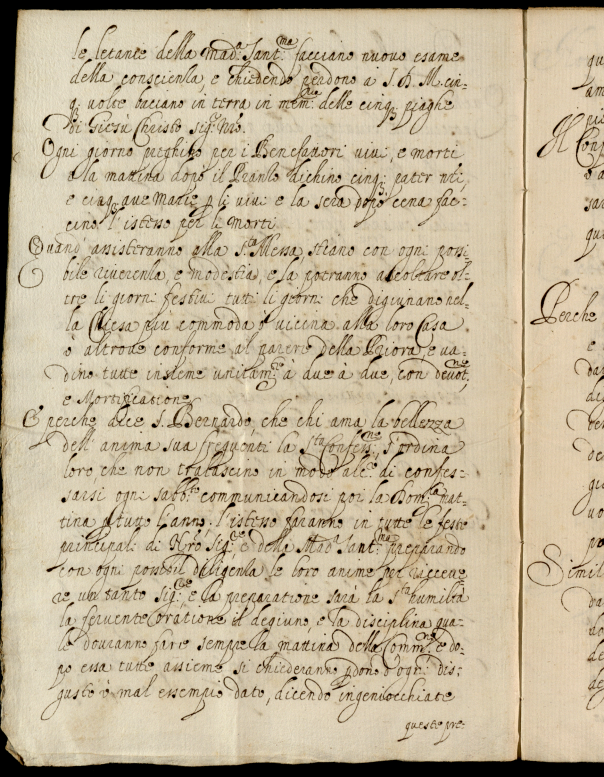 le letanie della Mad.ª Sant.ma facciano nuovo esame
della conscienza, e chiedendo perdono a S. D. M. cin=
q: volte baciano in terra in mem:ria delle cinq: piaghe
di Giesù Christo Sig.re Nrõ.
Ogni giorno preghino per i Benefattori vivi, e morti
e la mattina dopò il Pranso dichino cinq: pater nri,
e cinq: ave Marie p̱ li vivi e la sera dopò cena fac=
cino l'istesso per li morti
Quand' assisteranno alla S.ta Messa, stiano con ogni possi=
bile riverenza, e modestia, e la potranno ascoltare ol=
tre li giorni festivi tutti li giorni che digiunano nel=
la Chiesa più commoda ò vicina alla loro Casa
ò altrove conforme al parere della Priora, e va=
dino tutte insieme unitam.te à due à due, con devot.ne,
e Mortificatione
E perche dice S. Bernardo, che chi ama la bellezza
dell' anima sua frequenti la S.ta Confess.ne, s'ordina
loro, che non tralascino in modo alc.o di confes=
sarsi ogni Sabb.to communicandosi poi la Dom.ca mat=
tina p̱ tutto l'anno; l'istesso faranno in tutte le feste
principali di Nrõ Sig.re, e della Mad.ª Sant.ma preparando
con ogni possibil diligenza le loro anime per riceve
re un tanto Sig.re, e la preparatione sarà la S.ta humiltà
la fervente oratione il degiuno, e la disciplina qua=
le dovranno fare sempre la mattina della Comm.ne, e do=
po essa tutte assieme si chiederanno p̱dono d'ogni dis=
gusto ò mal essempio dato, dicendo ingenocchiate
queste pre=
qu
am
Il Con
sa
qu
Perche
e
da
di
de
gi
vo
po
Simil
da
de
de